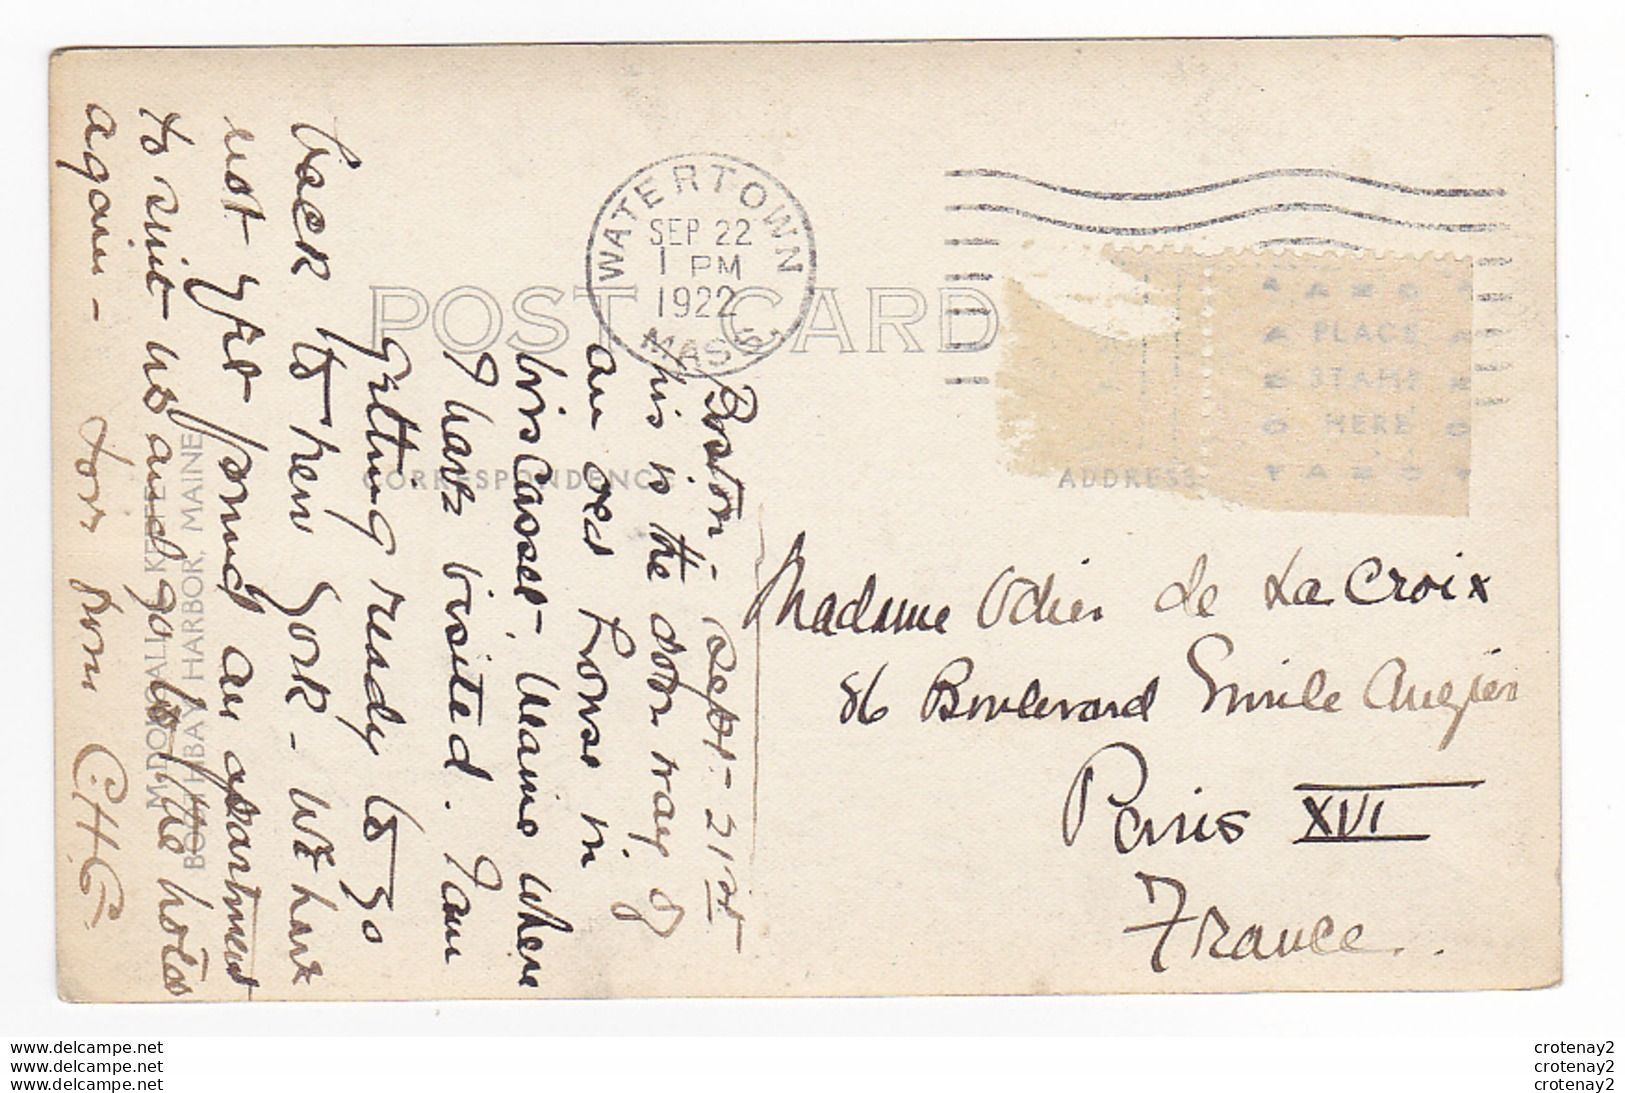 WATERTOWN
SEP 22
1 PM
1922
MASS.
POST CARD
CORRESPONDENCE
ADDRESS
PLACE
STAMP
HERE
Boston - Sept - 21st
This is the door way of
an old house in
Wiscasset, Maine where
I have visited. I am
getting ready to go
back to New York - We have
not yet found an apartment
to suit us and go to the hotel
again -
C.H.G.
Madame Odier de La Croix
86 Boulevard Emile Augier
Paris XVI
France.
McDOUGALL & KEEFE
BOOTHBAY HARBOR, MAINE
www.delcampe.net
www.delcampe.net
www.delcampe.net
crotenay2
crotenay2
crotenay2